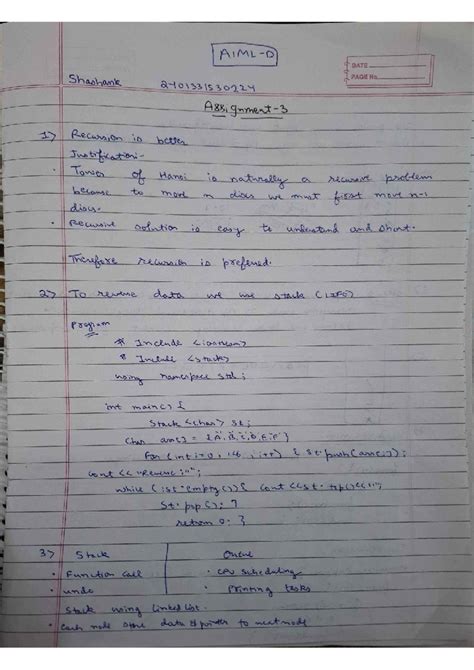 AIML-D
DATE
PAGE No.
Shashank 2401331530224
Assignment-3
1) Recursion is better
Justification:-
• Tower of Hanoi is naturally a recursive problem
because to move n discs we must first move n-1
discs.
• Recursive solution is easy to understand and short.
Therefore recursion is preferred.
2) To reverse data we use stack (LIFO)
Program
# Include <iostream>
# Include <stack>
using namespace std;
int main() {
Stack <char> st;
Char arr[] =
For (int i=0,
cout << "Reverse
while (!st.empty()) { cout << st.top() <<
st.pop(); }
return 0; }
3) Stack Queue
• Function call • CPU scheduling
• undo • Printing tasks
Stack using linked list.
• Each node store data & pointer to next node